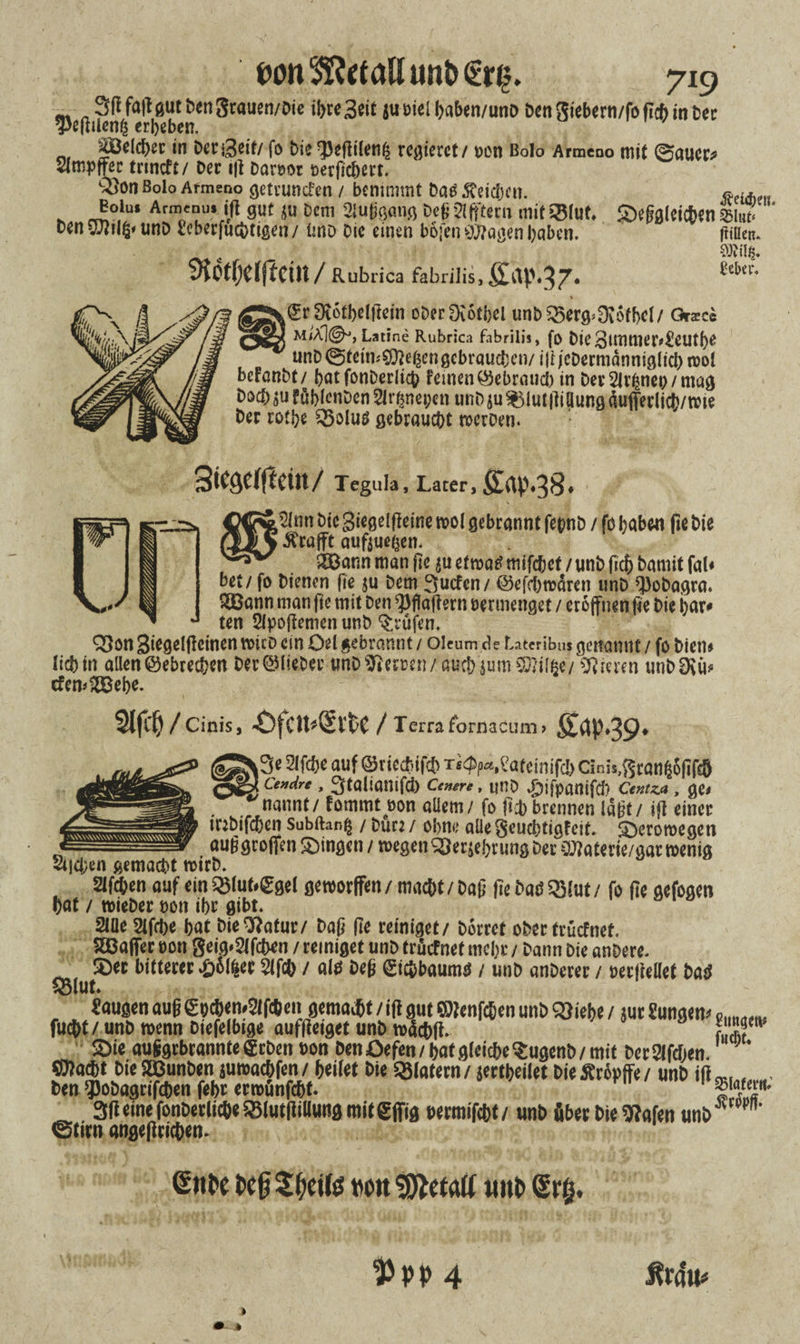 von Metall und Ertz. 719
Ist fast gut den Frauen/die ihre Zeit zu viel haben/und den Fiebern/so sich in der
Pestilentz erheben.
Welcher in der Zeit/ so die Pestilentz regieret/ von Bolo Armeno mit Sauer⸗
Ampffer trinckt/ der ist darvor versichert.
Von Bolo Armeno getruncken / benimmt das Keichen.
Keichen.
Bolus Armenus ist gut zu dem Außgang deß Afftern mit Blut. Deßgleichen
Blut⸗
den Miltz⸗ und Lebersüchtigen/ und die einen bösen Magen haben.
stillen.
Miltz.
Leber.
Röthelstein / Rubrica fabrilis, Cap.37.
Er Röthelstein oder Röthel und Berg⸗Röthel/ Græcè
Latinè Rubrica fabrilis, so die Zimmer⸗Leuthe
und Stein⸗Metzen gebrauchen/ ist jedermänniglich wol
bekandt/ hat sonderlich keinen Gebrauch in der Artzney / mag
doch zu kühlenden Artzneyen und zu Blutstillung äusserlich/wie
der rothe Bolus gebraucht werden.
Ziegelstein/ Tegula, Later, Cap.38.
Ann die Ziegelsteine wol gebrannt seynd / so haben sie die
Krafft aufzuetzen.
Wann man sie zu etwas mischet / und sich damit sal⸗
bet/ so dienen sie zu dem Jucken / Geschwären und Podagra.
Wann man sie mit den Pflastern vermenget / eröffnen sie die har⸗
ten Apostemen und Trüsen.
Von Ziegelsteinen wird ein Oel gebrannt / Oleum de Lateribus genannt / so dien⸗
lich in allen Gebrechen der Glieder und Nerven/ auch zum Miltze/ Nieren und Rü⸗
cken⸗Wehe.
Asch / Cinis, Ofen⸗Erde / Terra fornacum, Cap.39.
Je Asche auf Griechisch Τέφρα, Lateinisch Cinis, Frantzösisch
Cendre , Italianisch Cenere, und Hispanisch Centza , ge⸗
nannt/ kommt von allem/ so sich brennen läßt/ ist einer
irrdischen Substantz / dürr/ ohne alle Feuchtigkeit. Derowegen
auß grossen Dingen / wegen Verzehrung der Materie/gar wenig
Aschen gemacht wird.
Aschen auf ein Blut⸗Egel geworffen/ macht/ daß sie das Blut/ so sie gesogen
hat / wieder von ihr gibt.
Alle Asche hat die Natur/ daß sie reiniget/ dörret oder trücknet.
Wasser von Feig⸗Aschen / reiniget und trücknet mehr/ dann die andere.
Der bitterer Höltzer Asch / als deß Eichbaums / und anderer / verstellet das
Blut.
Laugen auß Eychen⸗Aschen gemacht / ist gut Menschen und Viehe / zur Lungen⸗
Lungen⸗
sucht/ und wenn dieselbige aufsteiget und wächst.
sucht.
Die außgebrannte Erden von den Oefen/ hat gleiche Tugend/ mit der Aschen.
Macht die Wunden zuwachsen/ heilet die Blatern/ zertheilet die Kröpffe/ und ist
Blatern.
den Podagrischen sehr erwünscht.
Kröpff.
Ist eine sonderliche Blutstillung mit Essig vermischt/ und über die Nasen und
Stirn angestrichen.
Ende deß Theils von Metall und Ertz.
Ppp 4 Kräu⸗